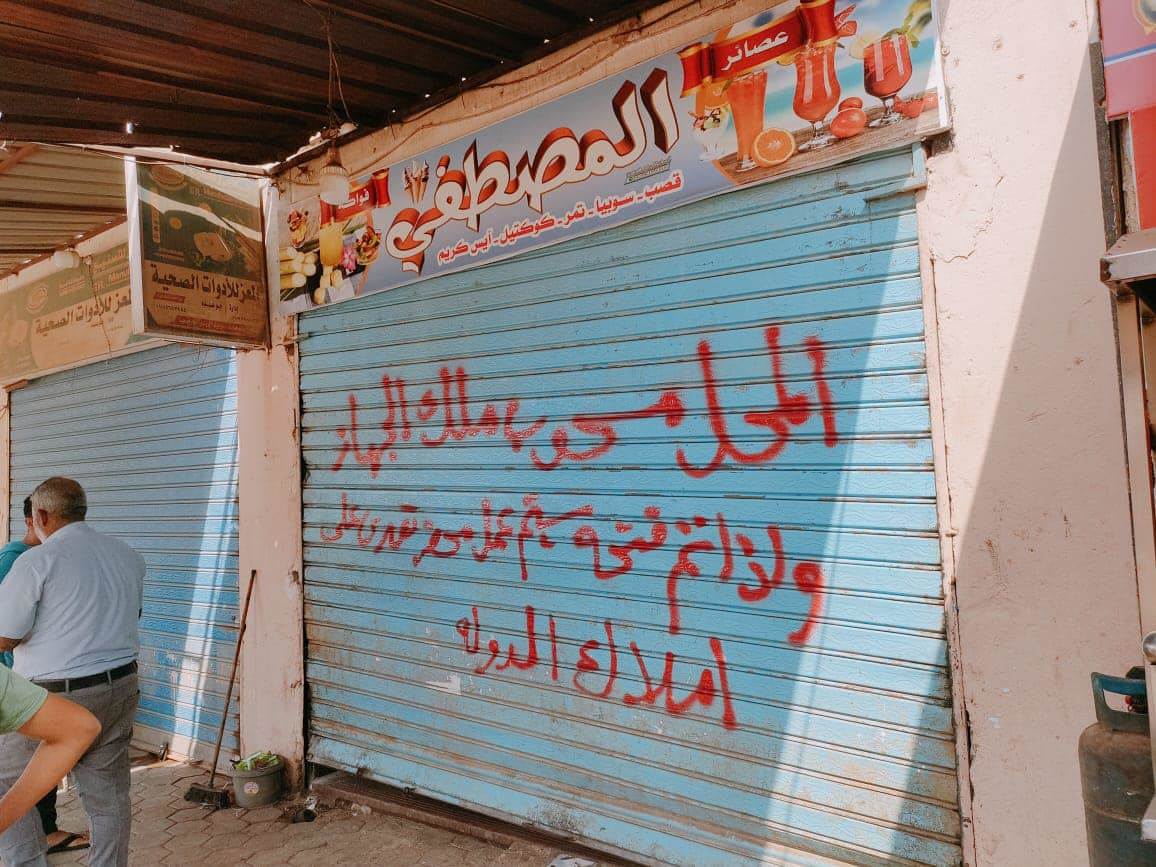 عصائر
المصطفي
فواكه
قصب - سوبيا - تمر - كوكتيل - آيس كريم
المعز للأدوات الصحية
المعز للأدوات الصحية
المحل مسحوب ملك الجهاز
ولا اتم فتحه سيتم عمل محضر تعدي على
املاك الدوله